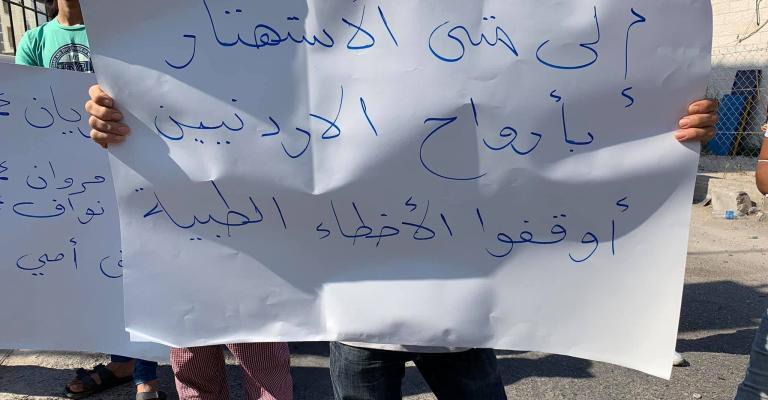 إلى متى الأستهتار
بأرواح الاردنيين
أوقفوا الأخطاء الطبية
مروان
نواف
أمي